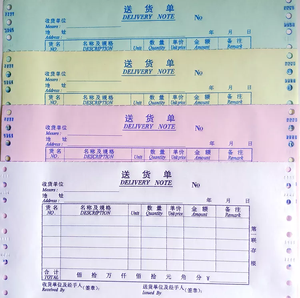 送 货 单
DELIVERY NOTE No
收货单位
Messrs :
地 址
Address :
年 月 日
货 名 名称及规格 单位 数 量 单价 金 额 备 注
NO. DESCRIPTION Unit Quantity Unit price Amount Remark
送 货 单
DELIVERY NOTE No
收货单位
Messrs :
地 址
Address :
年 月 日
货 名 名称及规格 数 量 单价 金 额 备 注
NO. DESCRIPTION Unit Quantity Unit price Amount Remark
送 货 单
DELIVERY NOTE No
收货单位
Messrs :
地 址
Address :
年 月 日
货 名 名称及规格 数 量 单价 金 额 备 注
NO. DESCRIPTION Unit Quantity Unit price Amount Remark
送 货 单
DELIVERY NOTE No
收货单位
Messrs :
地 址
Address :
年 月 日
货 名 名称及规格 数 量 单价 金 额 备 注
NO. DESCRIPTION Unit Quantity Unit price Amount Remark
第一联 存根
合 计
TOTAL 佰 拾 万 仟 佰 拾 元 角 分 ¥
收货单位及经手人(签章):
Received By
送货单位及经手人(签章):
Issued By